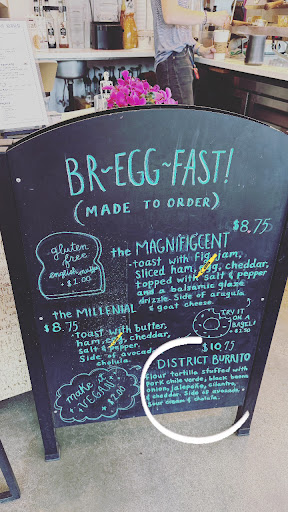 BR-EGG-FAST!
(MADE TO ORDER)
$8.75
gluten
free
english muffin
+ $1.00
the MAGNIFIGCENT
-toast with fig jam,
sliced ham, egg, cheddar,
topped with salt & pepper
and a balsamic glaze
drizzle. Side of arugula
& goat cheese.
the MILLENIAL
$8.75
-Toast with butter,
ham, egg, cheddar,
salt & pepper.
Side of avocado &
cholula.
TRY IT
ON A
BAGEL!
+$1.50
make it
VEGGIE!
+$2.00
$10.75
DISTRICT BURRITO
flour tortilla stuffed with
pork chile verde, black beans,
onion, jalapeño, cilantro,
& cheddar. Side of avocado,
sour cream & cholula.